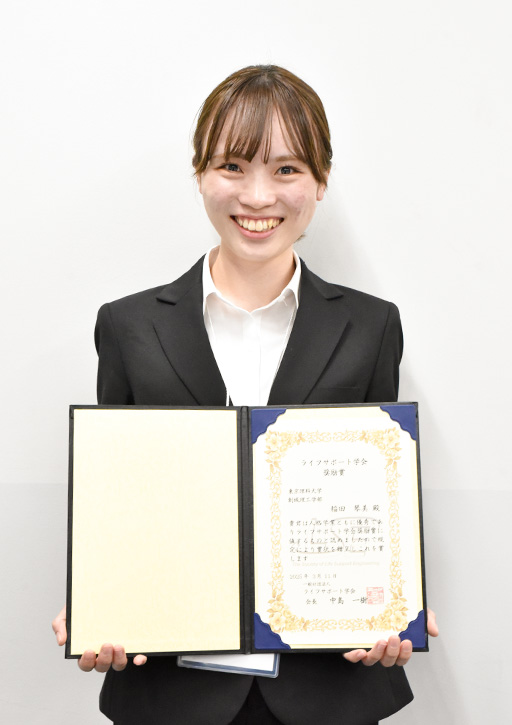 ライフサポート学会
奨励賞
東京理科大学
創域理工学部
稲田 琴美 殿
貴君は人格学業ともに優秀であ
りライフサポート学会奨励賞に
値するものと認めましたので規
定により賞状を贈呈しこれを賞
します
年 3月
一般社団法人
ライフサポート学会
会長 中島 一樹